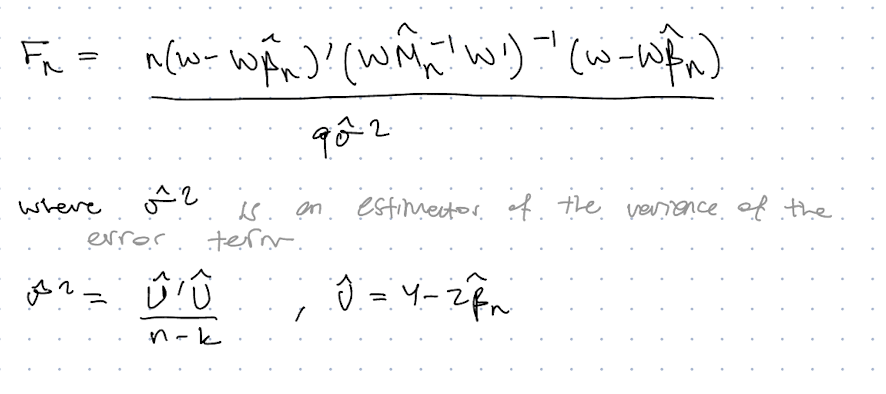 Fₙ = n(w - Wβ̂ₙ)'(WM̂ₙ⁻¹W')⁻¹(w - Wβ̂ₙ)
qσ̂²
where σ̂² is an estimator of the variance of the
error term
σ̂² = Û'Û / n-k , Û = Y - Zβ̂ₙ